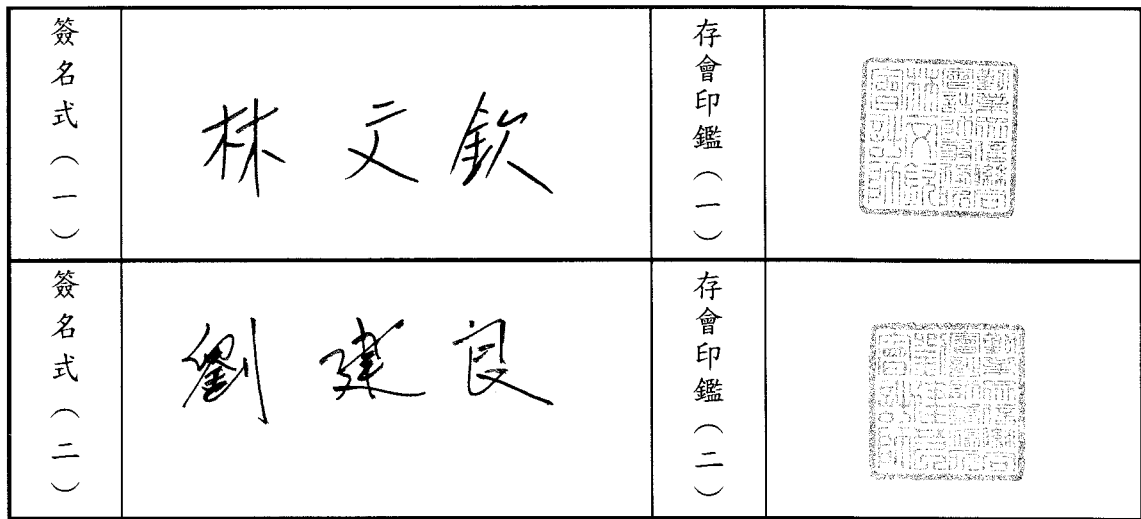 簽名式（一）
林文欽
存會印鑑（一）
簽名式（二）
劉建良
存會印鑑（二）